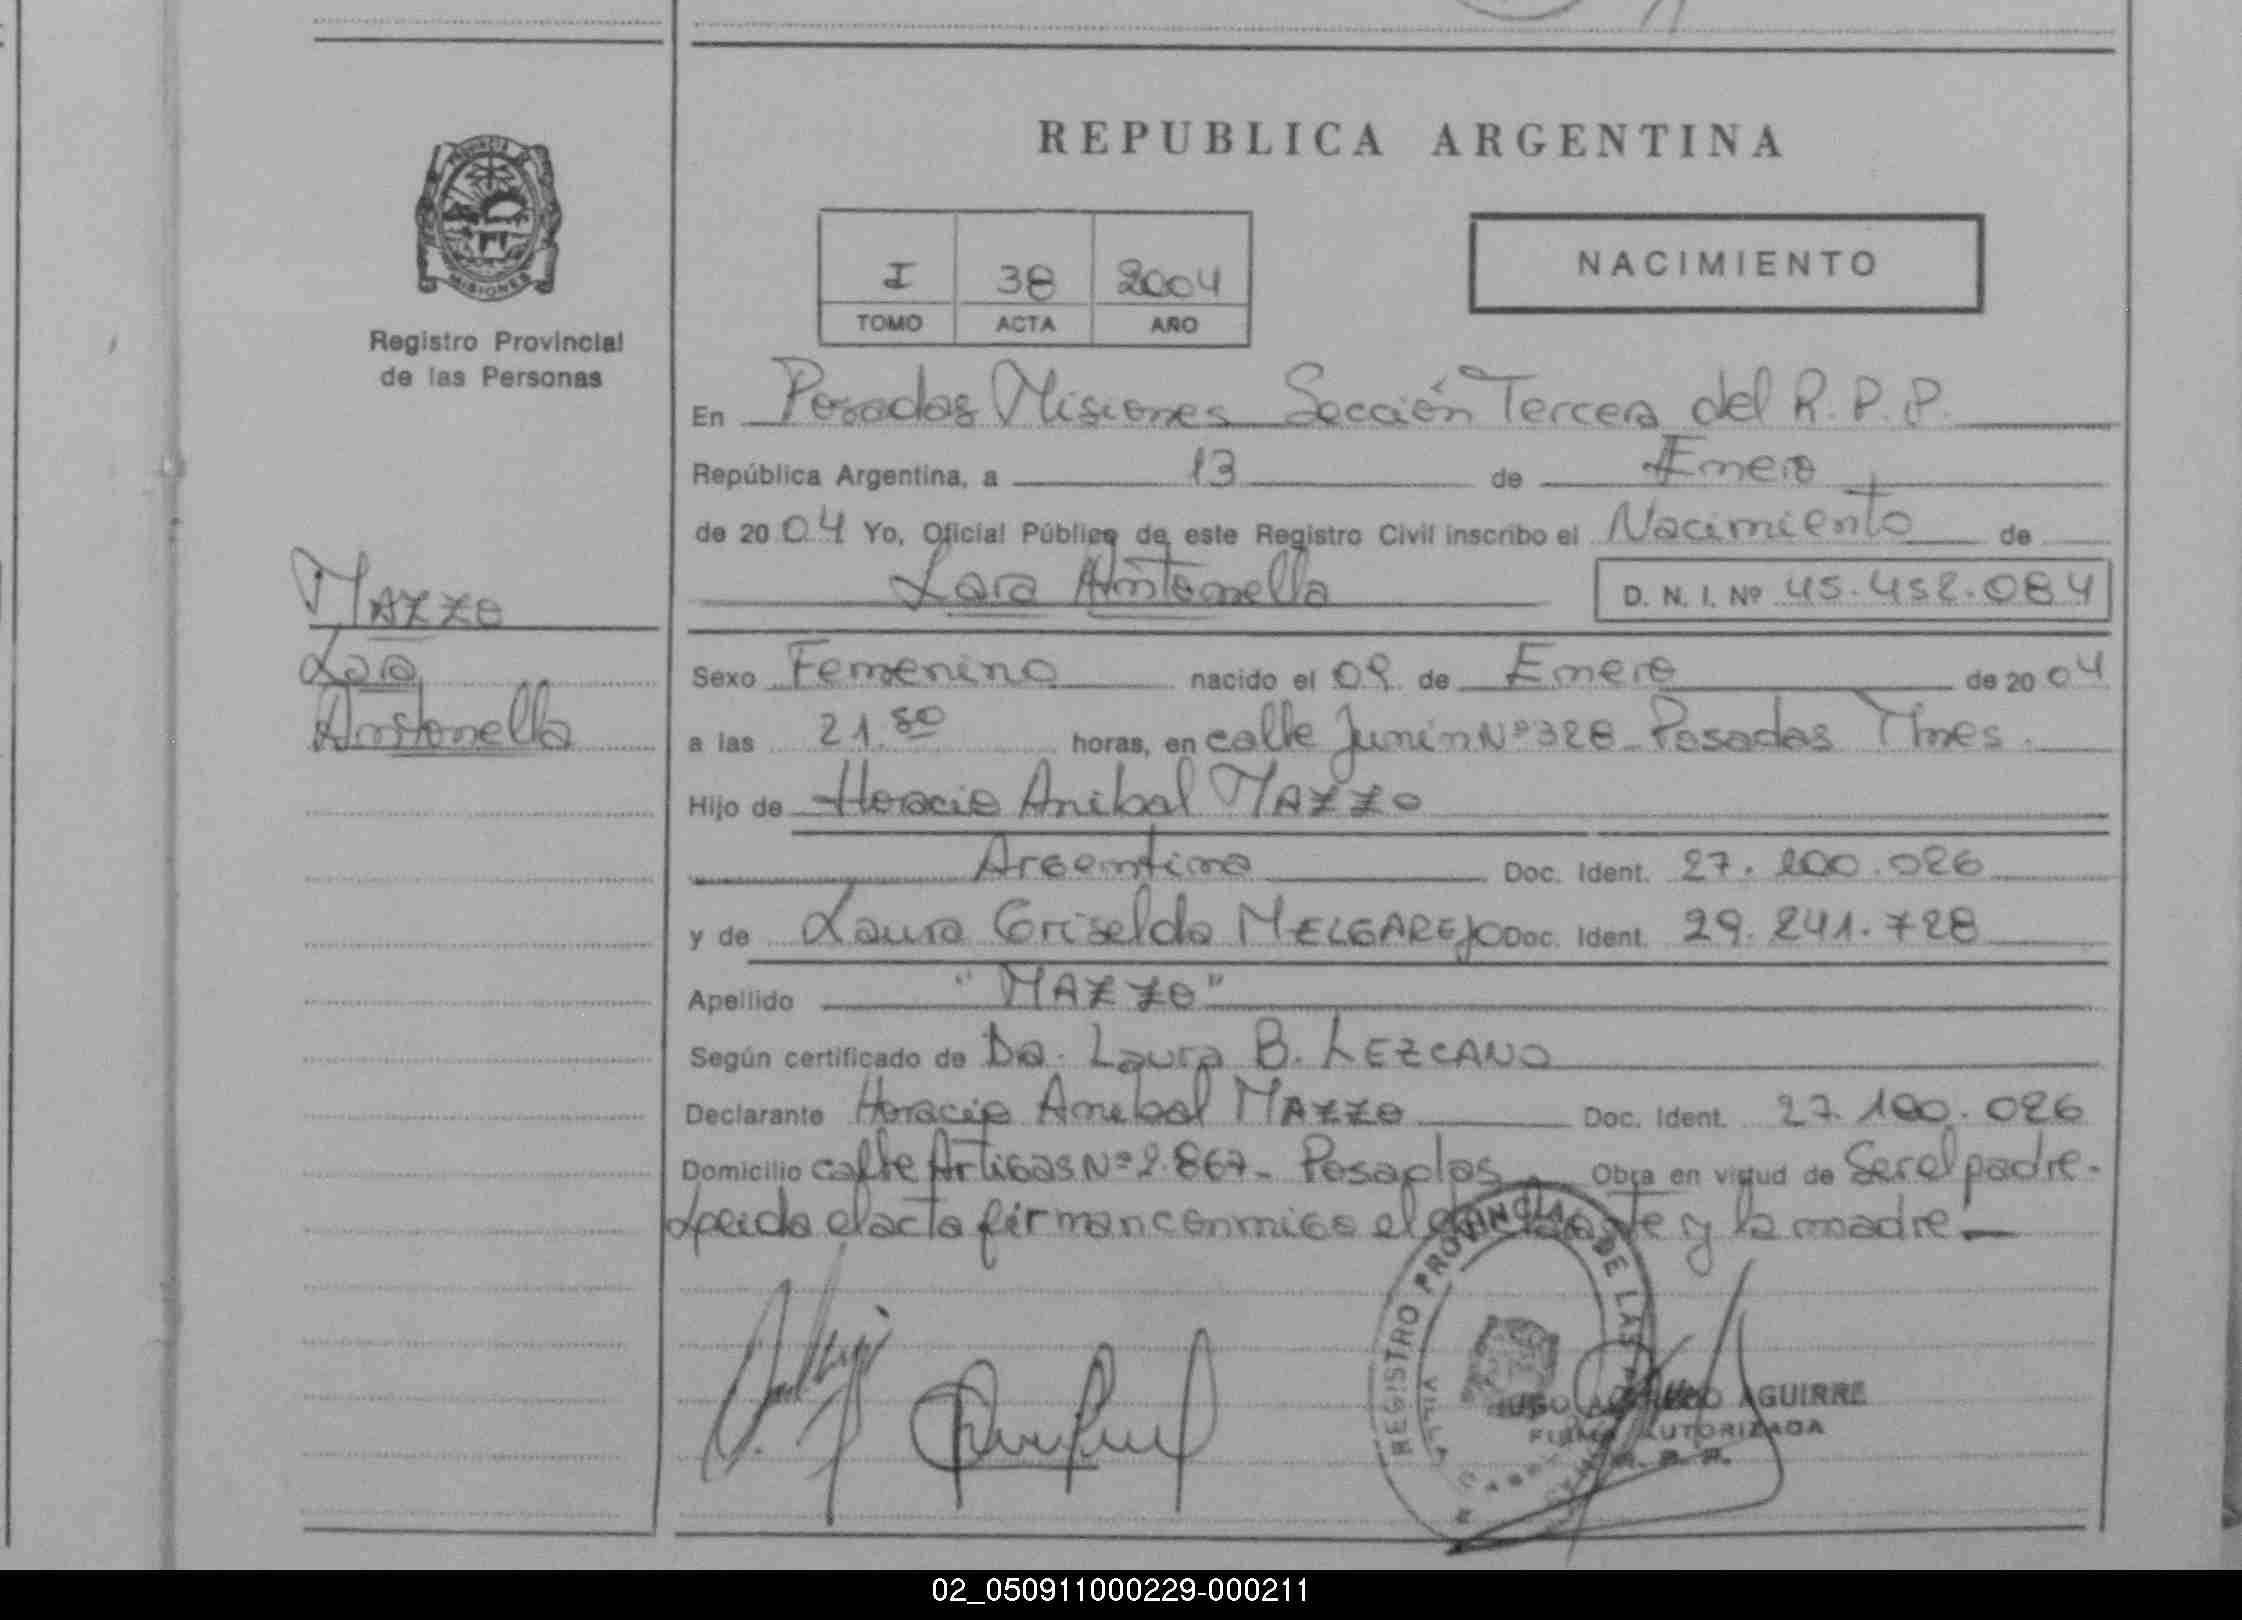 REPUBLICA ARGENTINA
PROVINCIA DE
MISIONES
Registro Provincial
de las Personas
I 38 2004
TOMO ACTA AÑO
NACIMIENTO
En Posadas Misiones Sección Tercera del R.P.P.
República Argentina, a 13 de Enero
de 2004 Yo, Oficial Público de este Registro Civil inscribo el Nacimiento de
Lara Antonella D. N. I. Nº 45.452.084
MAZZO
Lara
Antonella
Sexo Femenino nacido el 09 de Enero de 2004
a las 21. horas, en calle Junín Nº 328 Posadas Mnes.
Hijo de Horacio Anibal MAZZO
Argentina Doc. Ident. 27. .026
y de Laura Griselda MELGAREJO Doc. Ident. 29.241.728
Apellido "MAZZO"
Según certificado de Da. Laura B. LEZCANO
Declarante Horacio Anibal MAZZO Doc. Ident. 27.100.026
Domicilio calle Artigas Nº 2.867- Posadas Obra en virtud de Ser el padre.
Leida el acta firman conmigo el declarante y la madre.-
REGISTRO PROVINCIAL DE LAS
VILLA CABELLO
HUGO AGUIRRE
FIRMA AUTORIZADA
R. P. P.
02_050911000229-000211